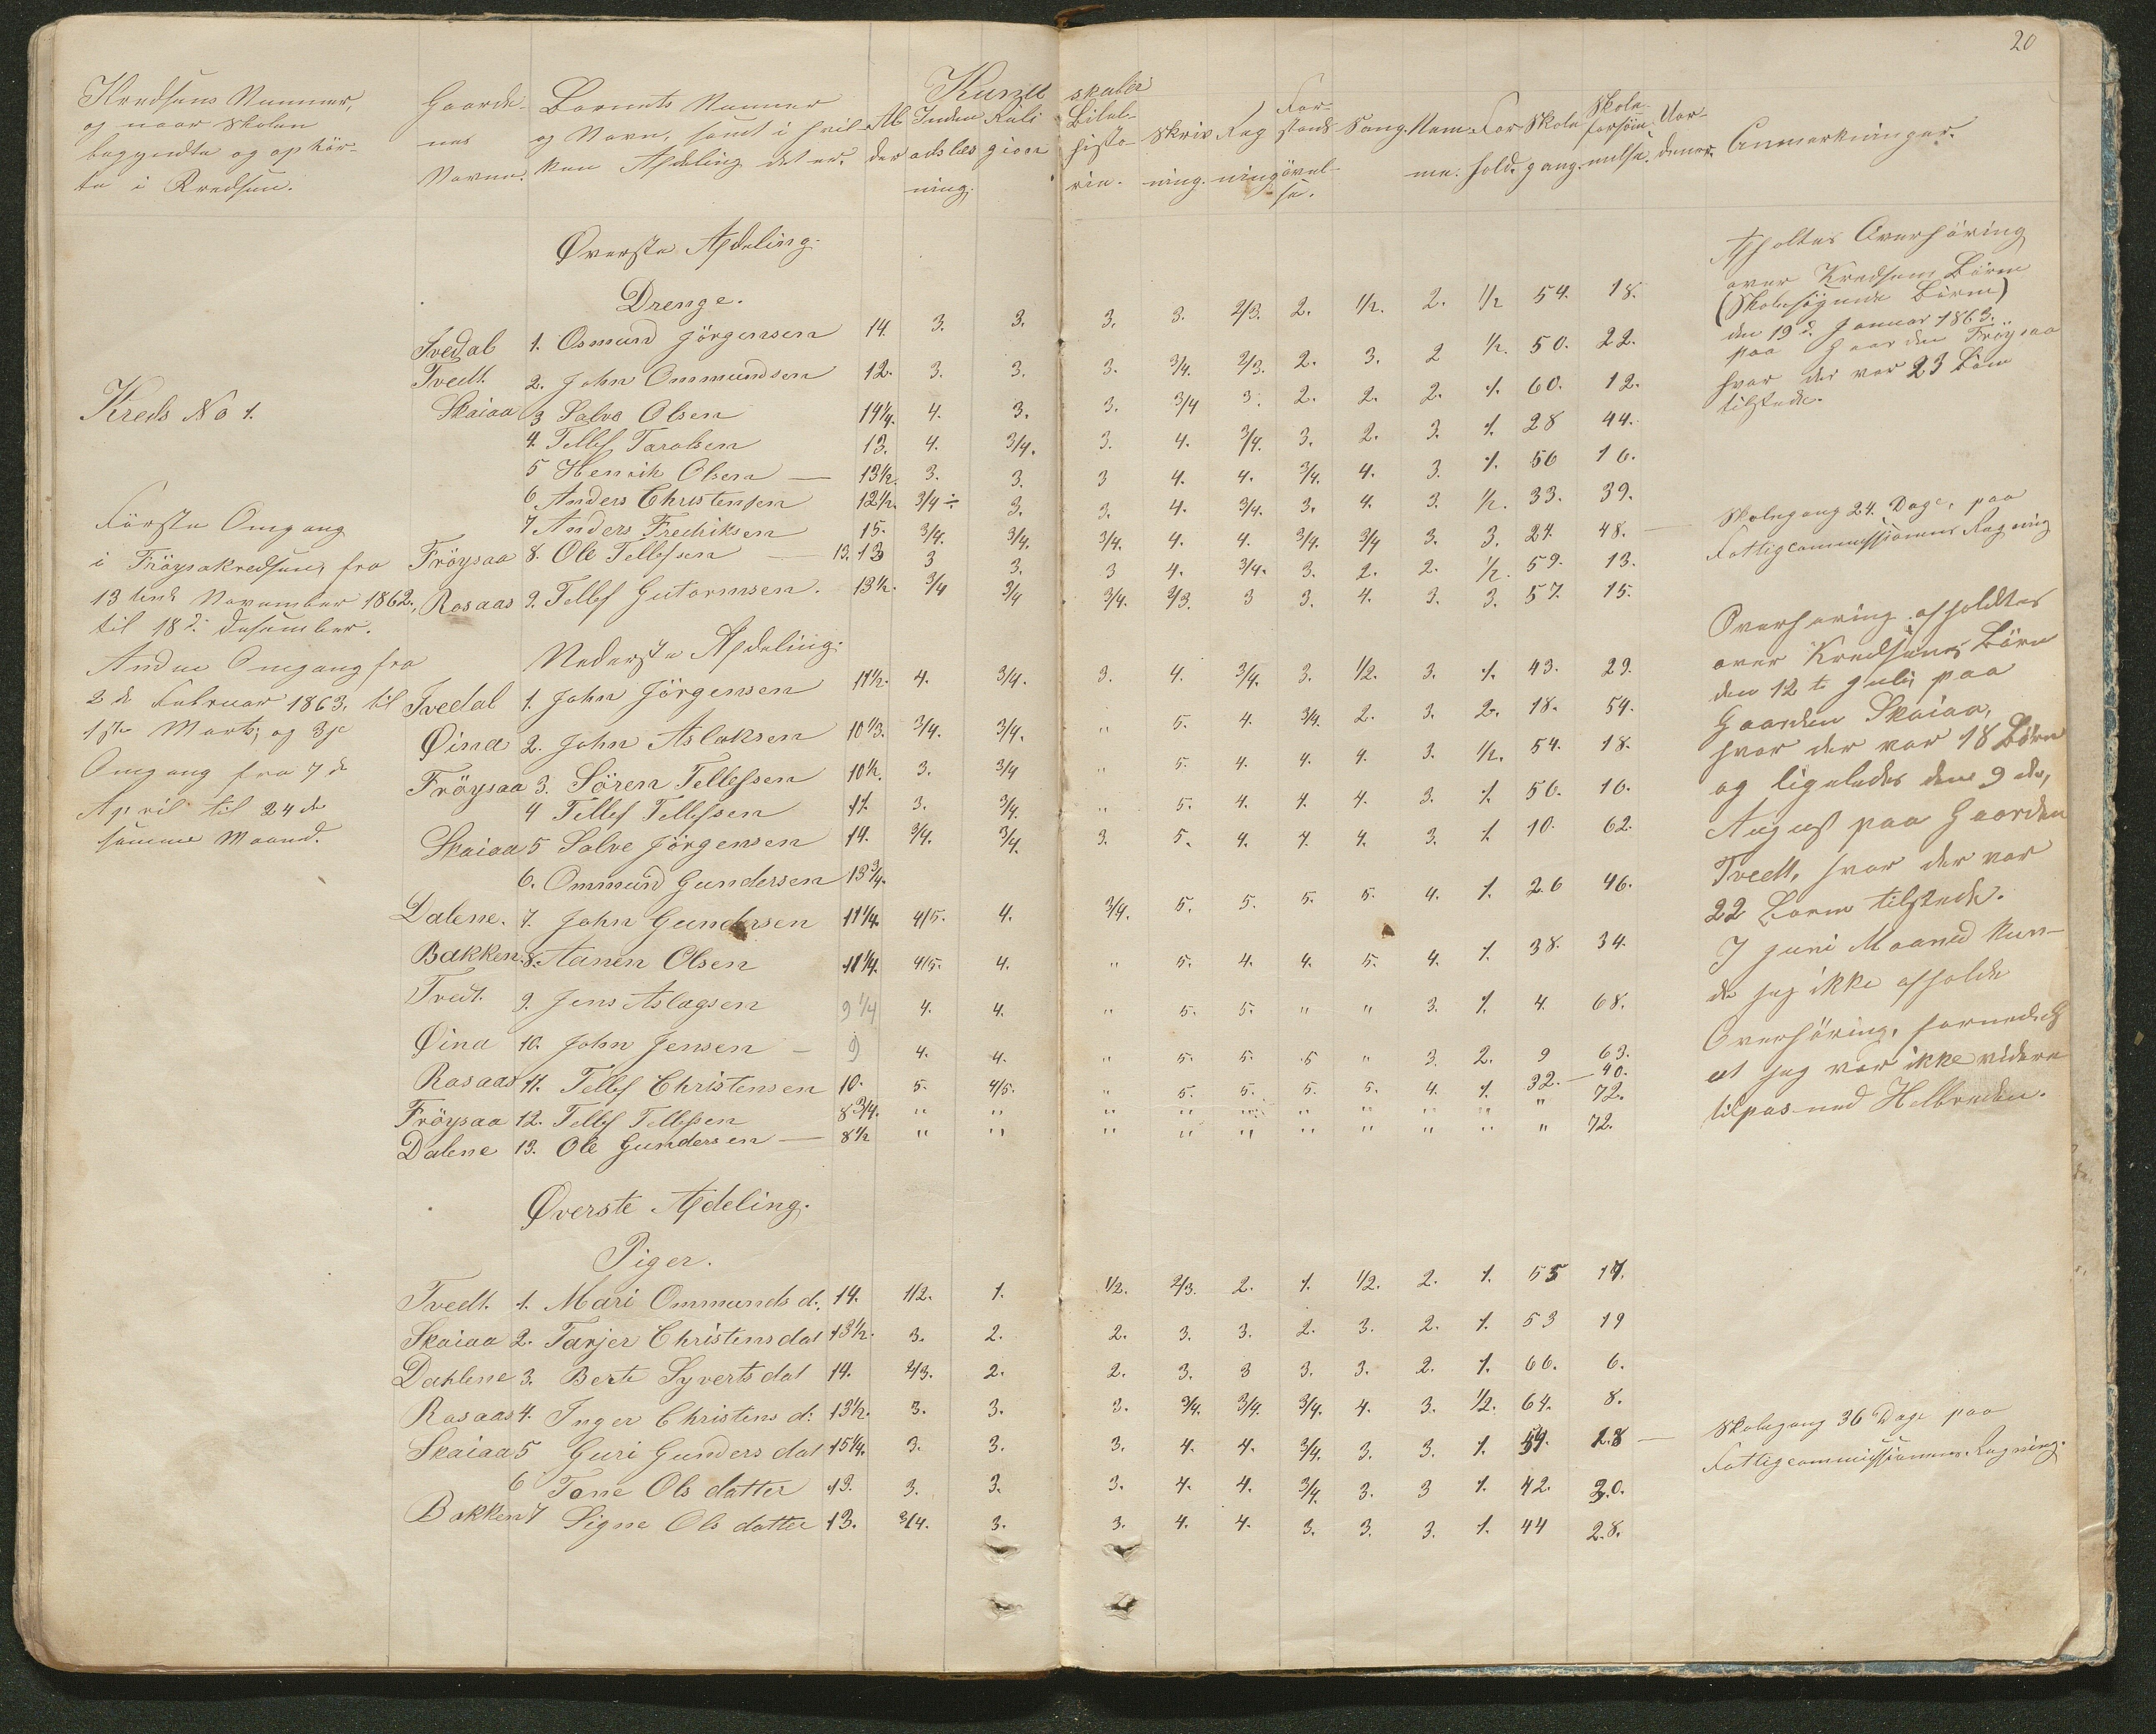 20
Kundskaber
Kredsens Nummer,
og naar Skolen
begyndte og ophör-
te i Kredsen.
Gaarde-
nes
Navne.
Barnets Nummer
og Navn, samt i hvil-
ken Afdeling det er.
Al
der
Inden
adslæs
ning.
Reli
gion
Bibel-
histo-
rie.
Skriv
ning.
Reg
ning
For-
stands
övel-
se.
Sang.
Nem
me.
For
hold.
Skole
gang.
Skole-
forsöm
melse.
Vor-
dener.
Anmærkninger.
Øverste Afdeling.
Drenge.
Tvedal 1. Osmund Jörgensen 14. 3. 3. 3. 3. 2/3. 2. 1/2. 2. 1/2 54. 18.
Tvedt. 2. John Ommundsen 12. 3. 3. 3. 3/4. 2/3. 2. 3. 2 1/2. 50. 22.
Skaiaa 3 Salve Olsen 14 1/4. 4. 3. 3. 3/4 3. 2. 2. 2. 1. 60. 12.
4. Tellef Taralsen 13. 4. 3/4. 3. 4. 3/4. 3. 2. 3. 1. 28 44.
5 Henrik Olsen — 13 1/2. 3. 3. 3 4. 4. 3/4. 4. 3. 1. 56 16.
6 Anders Christensen 12 1/2. 3/4 ÷ 3. 3. 4. 3/4. 3. 4. 3. 1/2. 33. 39.
7 Anders Fredriksen 15. 3/4. 3/4. 3/4. 4. 4. 3/4. 3/4 3. 3. 24. 48. —
Fröysaa 8. Ole Tellefsen — 13. 13 3 3. 3 4. 3/4. 3. 2. 2. 1/2. 59. 13.
Rosaas 9. Tellef Gutormsen. 13 1/2. 3/4 3/4 3/4. 2/3. 3 3. 4. 3. 3. 57. 15.
Kreds No 1.
Förste Omgang
i Fröysakredsen, fra
13 tende November 1862.,
til 18 d. Desember.
Anden Omgang fra
2 d. Februar 1863. til
1ste Marts; og 3je
Omgang fra 7 d
April til 24 de
samme Maand.
Nederste Afdeling.
Tvedal 1. John Jörgensen 11 1/2. 4. 3/4. 3. 4. 3/4. 3. 1/2. 3. 1. 43. 29.
Øina 2. John Aslaksen 10 1/3. 3/4. 3/4. " 5. 4. 3/4. 2. 3. 2. 18. 54.
Fröysaa 3. Sören Tellefsen 10 1/2. 3. 3/4 " 5. 4. 4. 4. 3. 1/2. 54. 18.
4 Tellef Tellefsen 11. 3. 3/4. " 5. 4. 4. 4. 3. 1. 56. 16.
Skaiaa 5 Salve Jörgensen 14. 3/4. 3/4. 3. 5. 4. 4. 4. 3. 1. 10. 62.
6. Ommund Gundersen 13 3/4.
Dalene. 7. John Gundersen 11 1/4. 4/5. 4. 3/4. 5. 5. 5. 5. 4. 1. 26 46.
Bakken. 8. Aanen Olsen 11 1/4. 4/5. 4. " 5. 4. 4. 5. 4. 1. 38. 34.
Tvedt. 9. Jens Aslagsen 9 1/4 4. 4. " 5. 5. " " 3. 1. 4. 68.
Øina 10. John Jensen — 9 4. 4. " 5. 5. 5 " 3. 2. 9 63.
Rosaas 11. Tellef Christensen 10. 5. 4/5. " 5. 5. 5. 5. 4. 1. 32. — 40.
Fröysaa 12. Tellef Tellefsen 8 3/4. " " " " " " " " " " 72.
Dalene 13. Ole Gundersen — 8 1/2 " " " " " " " " " " 72.
Øverste Afdeling.
Piger.
Tvedt. 1. Mari Ommunds d. 14. 1/2. 1. 1/2. 2/3. 2. 1. 1/2. 2. 1. 55 17.
Skaiaa 2. Tarjer Christensdat 13 1/2. 3. 2. 2. 3. 3. 2. 3. 2. 1. 53 19
Dahlene 3. Berte Syvertsdat 14. 2/3. 2. 2. 3. 3 3. 3. 2. 1. 66. 6.
Rosaas 4. Inger Christens d: 13 1/2. 3. 3. 3. 3/4. 3/4. 3/4. 4. 3. 1/2. 64. 8.
Skaiaa 5 Guri Gunders dat 15 1/4. 3. 3. 3. 4. 4. 3/4. 3. 3. 1. 54. 18 —
6 Tone Ols datter 13. 3. 3. 3. 4. 4. 3/4. 3. 3 1. 42. 30.
Bakken 7 Signe Ols datter 13. 3/4. 3. 3. 4. 4. 3. 3. 3. 1. 44 28.
Afholtes Overhöring
over Kredsens Börn
(Skolesögende Börn)
den 19 d. Januar 1863.
paa Gaarden Fröysaa
hvor der var 23 Börn
tilstede.
Skolegang 24. Dage, paa
Fattigcommissionens Regning
Overhöring afholdtes
over Kredsens Börn
den 12 te Juli, paa
Gaarden Skaiaa,
hvor der var 18 Börn
og ligeledes den 9 de,
August paa Gaarden
Tvedt, hvor der var
22 Börn tilstede.
I Juni Maaned kun-
de jeg ikke afholde
Overhöring, formedelst
at jeg var ikke videre
tilpas med Helbreden.
Skolegang 36 Dage paa
Fattigcommissionens Regning.